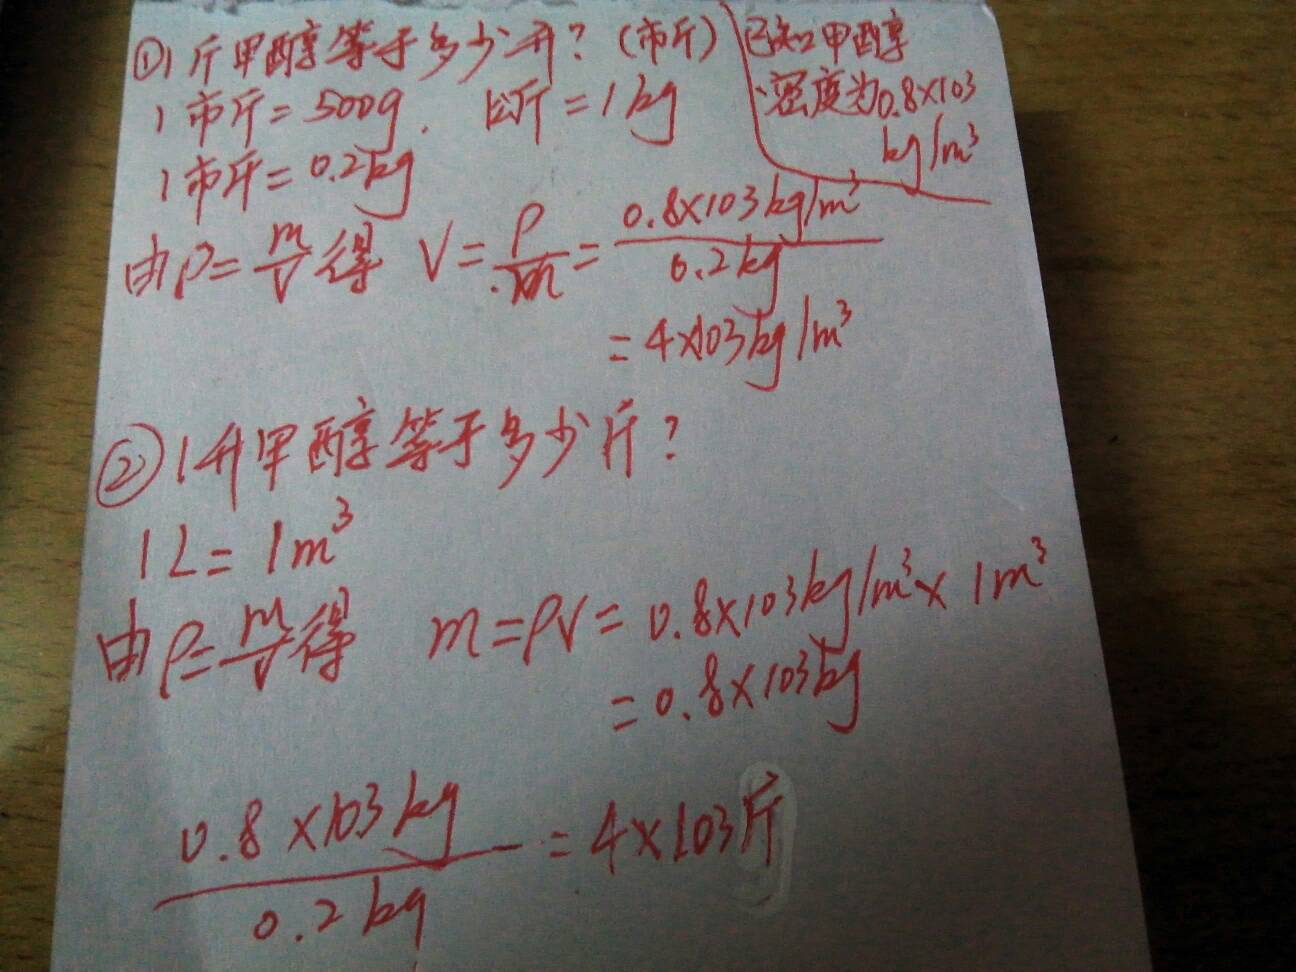 ①1斤甲醇等于多少升?(市斤)
已知甲醇
密度为0.8×103
kg/m³
1市斤=500g. 1公斤=1kg
1市斤=0.2kg
由ρ=m/V得 V=ρ/m=0.8×103kg/m³/0.2kg
=4×103kg/m³
②1升甲醇等于多少斤?
1L=1m³
由ρ=m/V得 m=ρV=0.8×103kg/m³×1m³
=0.8×103kg
0.8×103kg/0.2kg=4×103斤